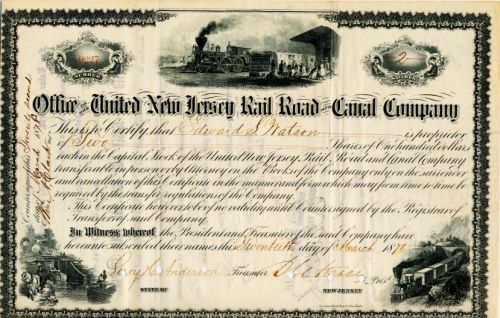 9227
NUMBER
2
SHARES
Office of the United New Jersey Rail Road and Canal Company
This is to Certify that Edward S. Watson is proprietor
of Two Shares of One hundred dollars
each in the Capital Stock of the United New Jersey Rail Road and Canal Company
transferable in person or by Attorney on the Books of the Company only on the surrender
and cancellation of this Certificate in the manner and form which may from time to time be
required by the transfer regulations of the Company.
This Certificate however to be of no validity until Countersigned by the Registrar of
Transfers of said Company.
In Witness whereof the President and Treasurer of the said Company have
hereunto subscribed their names this Twentieth day of March 1878
Treasurer
Pres.t
STATE OF
NEW JERSEY
Countersigned this
day of March 1878